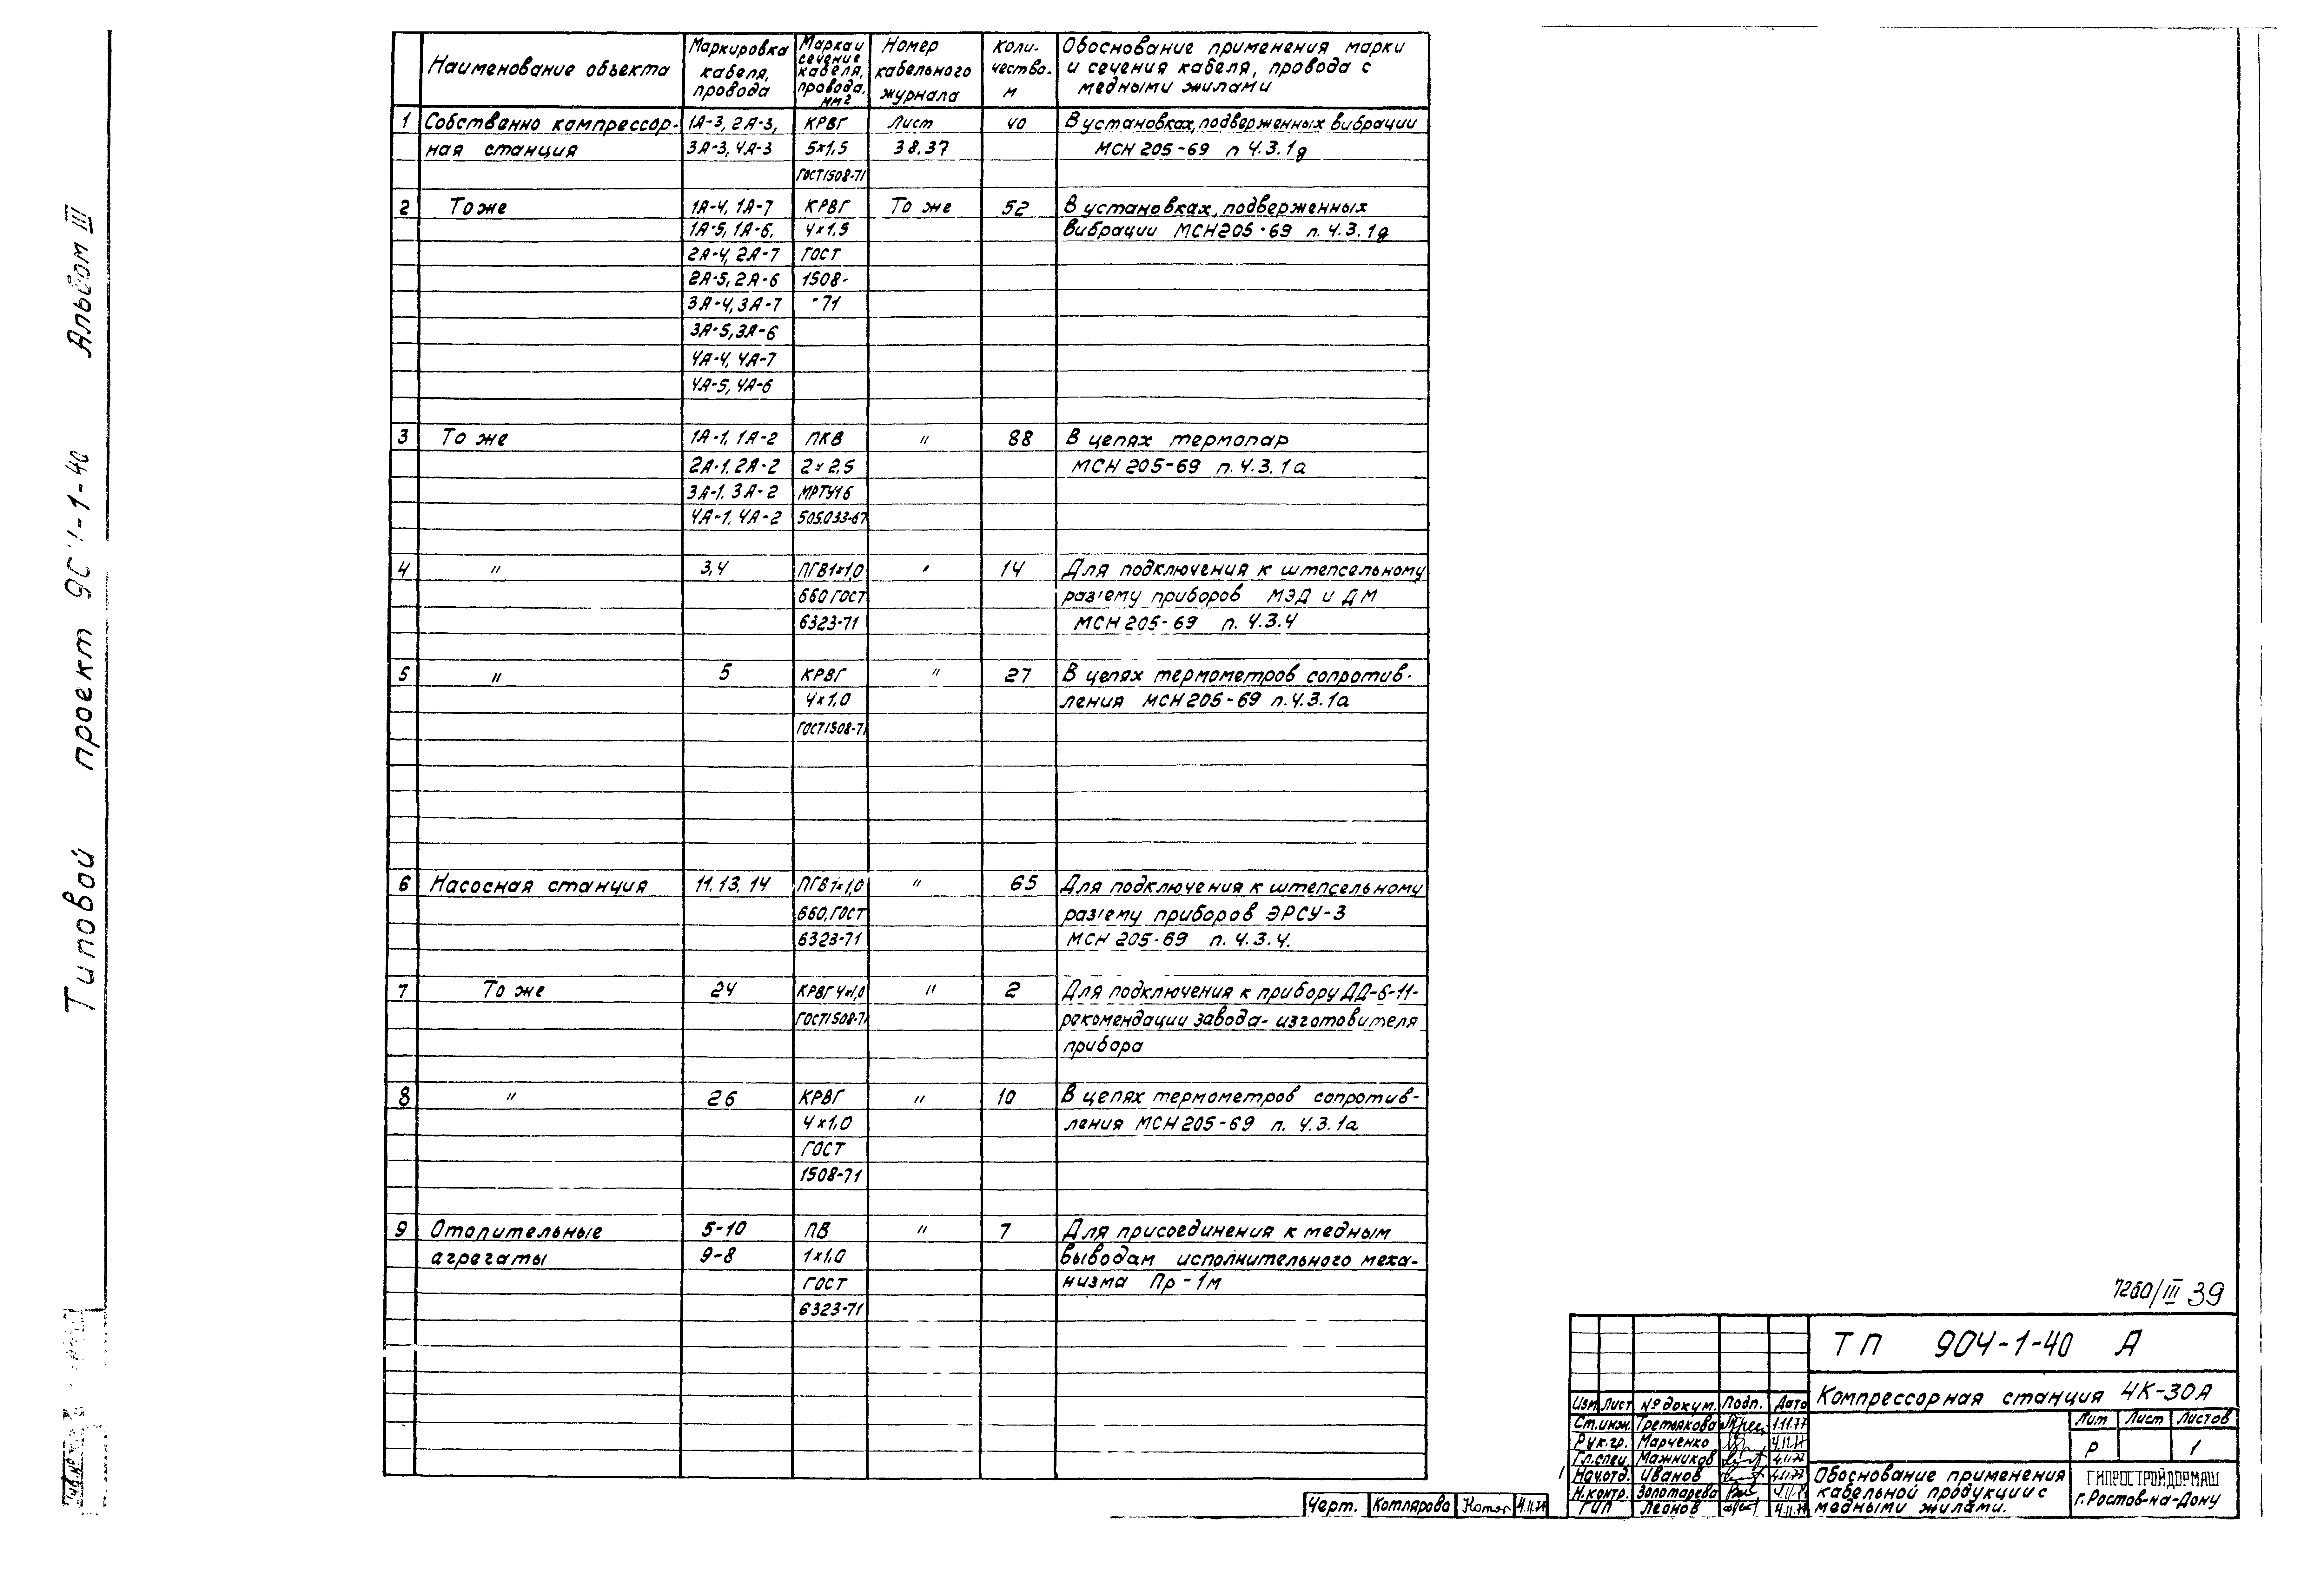 Альбом III
Типовой проект 904-1-40
Наименование объекта
Маркировка кабеля, провода
Марка и сечение кабеля, провода, мм2
Номер кабельного журнала
Коли-чество. м
Обоснование применения марки и сечения кабеля, провода с медными жилами
1 Собственно компрессор- 1А-3, 2А-3, КРВГ Лист 40 В установках, подверженных вибрации
ная станция 3А-3, 4А-3 5х1,5 38,37 МСН 205-69 п 4.3.1д
ГОСТ1508-71
2 То же 1А-4, 1А-7 КРВГ То же 52 В установках, подверженных
1А-5, 1А-6, 4х1,5 вибрации МСН205-69 п. 4.3.1д
2А-4, 2А-7 ГОСТ
2А-5, 2А-6 1508-
3А-4, 3А-7 -71
3А-5, 3А-6
4А-4, 4А-7
4А-5, 4А-6
3 То же 1А-1, 1А-2 ПКВ " 88 В цепях термопар
2А-1, 2А-2 2х2.5 МСН 205-69 п. 4.3.1а
3А-1, 3А-2 МРТУ16
4А-1, 4А-2 505.033-67
4 " 3,4 ПГВ1х1,0 " 14 Для подключения к штепсельному
660 ГОСТ раз'ему приборов МЭД и ДМ
6323-71 МСН 205-69 п. 4.3.4
5 " 5 КРВГ " 27 В цепях термометров сопротив-
4х1,0 ления МСН 205-69 п. 4.3.1а
ГОСТ1508-71
6 Насосная станция 11, 13, 14 ПГВ1х1,0 " 65 Для подключения к штепсельному
660, ГОСТ раз'ему приборов ЭРСУ-3
6323-71 МСН 205-69 п. 4.3.4.
7 То же 24 КРВГ 4х1,0 " 2 Для подключения к прибору ДД-6-11-
ГОСТ1508-71 рекомендации завода-изготовителя
прибора
8 " 26 КРВГ " 10 В цепях термометров сопротив-
4х1,0 ления МСН 205-69 п. 4.3.1а
ГОСТ
1508-71
9 Отопительные 5-10 ПВ " 7 Для присоединения к медным
агрегаты 9-8 1х1,0 выводам исполнительного меха-
ГОСТ низма Пр-1м
6323-71
7260/III 39
ТП 904-1-40 А
Компрессорная станция 4К-30А
Изм. Лист № докум. Подп. Дата
Ст.инж. Третьякова 1.11.77
Рук.гр. Марченко 4.11.77
Гл.спец. Мажников 4.11.77
Нач.отд. Иванов 4.11.77
Н.контр. Золотарева 4.11.77
ГИП Леонов 4.11.77
Лит Лист Листов
Р 1
Обоснование применения
кабельной продукции с
медными жилами.
ГИПРОСТРОЙДОРМАШ
г. Ростов-на-Дону
Черт. Котлярова 4.11.77